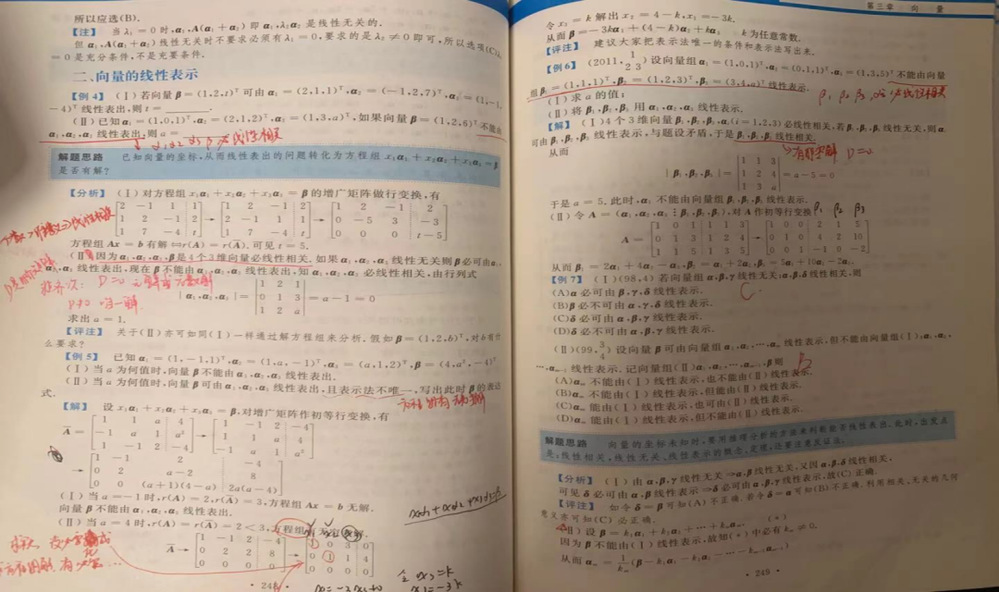 所以应选(B).
【注】 当 λ₁=0时,α₁,A(α₁+α₂) 即 α₁,λ₂α₂ 是线性无关的.
但 α₁,A(α₁+α₂) 线性无关时不要求必须有 λ₁=0,要求的是 λ₂≠0 即可,所以选项(C)λ₁
=0 是充分条件,不是充要条件.
二、向量的线性表示
【例 4】 (Ⅰ)若向量 β=(1,2,t)ᵀ 可由 α₁=(2,1,1)ᵀ,α₂=(-1,2,7)ᵀ,α₃=(1,-1,
-4)ᵀ 线性表出,则 t=
(Ⅱ)已知 α₁=(1,0,1)ᵀ,α₂=(2,1,2)ᵀ,α₃=(1,3,a)ᵀ,如果向量 β=(1,2,6)ᵀ 不能由
α₁,α₂,α₃ 线性表出,则 a=
α₁ α₂ α₃ 线性相关
解题思路 已知向量的坐标,从而线性表出的问题转化为方程组 x₁α₁+x₂α₂+x₃α₃=β
是否有解?
【分析】 (Ⅰ)对方程组 x₁α₁+x₂α₂+x₃α₃=β 的增广矩阵做行变换,有
2 -1 1 1 → 1 2 -1 2 → 1 2 -1 2
1 2 -1 2 2 -1 1 1 0 -5 3 -3
1 7 -4 t 1 7 -4 t 0 0 0 t-5
方程组 Ax=b 有解⇔r(A)=r(A̅). 可见 t=5.
(Ⅱ)因为 α₁,α₂,α₃,β是 4 个 3 维向量必线性相关. 如果 α₁,α₂,α₃ 线性无关则 β 必可由 α₁,
α₂,α₃ 线性表出,现在 β 不能由 α₁,α₂,α₃ 线性表出,知 α₁,α₂,α₃ 必线性相关,由行列式
|α₁,α₂,α₃|= 1 2 1
0 1 3 =a-1=0
1 2 a
求出 a=1.
【评注】 关于(Ⅱ)亦可如同(Ⅰ)一样通过解方程组来分析. 假如 β=(1,2,6)ᵀ,对 b 有什
么要求?
【例 5】 已知 α₁=(1,-1,1)ᵀ,α₂=(1,a,-1)ᵀ,α₃=(a,1,2)ᵀ,β=(4,a²,-4)ᵀ
(Ⅰ)当 a 为何值时,向量 β 不能由 α₁,α₂,α₃ 线性表出.
(Ⅱ)当 a 为何值时,向量 β 可由 α₁,α₂,α₃ 线性表出,且表示法不唯一,写出此时 β 的表达
式.
【解】 设 x₁α₁+x₂α₂+x₃α₃=β,对增广矩阵作初等行变换,有
A̅= 1 1 a 4 → 1 -1 2 -4
-1 a 1 a² 1 1 a 4
1 -1 2 -4 -1 a 1 a²
→ 1 -1 2 -4
0 2 a-2 8
0 0 (a+1)(4-a) 2a(a-4)
(Ⅰ)当 a=-1 时,r(A)=2,r(A̅)=3,方程组 Ax=b 无解.
向量 β 不能由 α₁,α₂,α₃ 线性表出.
(Ⅱ)当 a=4 时,r(A)=r(A̅)=2<3,方程组
A̅→ 1 -1 2 -4 → 1 0 3 0
0 2 2 8 0 1 1 4
0 0 0 0 0 0 0 0
令 x₃=k
· 248 ·
第三章 向 量
令 x₃=k 解出 x₂=4-k,x₁=-3k.
从而 β=-3kα₁+(4-k)α₂+kα₃ k 为任意常数.
【评注】 建议大家把表示法唯一的条件和表示法写出来.
【例 6】 (2011,1 2 3)设向量组 α₁=(1,0,1)ᵀ,α₂=(0,1,1)ᵀ,α₃=(1,3,5)ᵀ 不能由向量
组 β₁=(1,1,1)ᵀ,β₂=(1,2,3)ᵀ,β₃=(3,4,a)ᵀ 线性表示.
(Ⅰ)求 a 的值;
(Ⅱ)将 β₁,β₂,β₃ 用 α₁,α₂,α₃ 线性表示.
【解】 (Ⅰ)4 个 3 维向量 β₁,β₂,β₃,αᵢ(i=1,2,3) 必线性相关,若 β₁,β₂,β₃ 线性无关,则 αᵢ
可由 β₁,β₂,β₃ 线性表示,与题设矛盾,于是 β₁,β₂,β₃ 线性相关.
从而
|β₁,β₂,β₃|= 1 1 3
1 2 4 =a-5=0
1 3 a
于是 a=5. 此时,αᵢ 不能由向量 β₁,β₂,β₃ 线性表示.
(Ⅱ)令 A=(α₁,α₂,α₃ ⋮ β₁,β₂,β₃),对 A 作初等行变换
A= 1 0 1 1 1 3 → 1 0 0 2 1 5
0 1 3 1 2 4 0 1 0 4 2 10
1 1 5 1 3 5 0 0 1 -1 0 -2
从而 β₁=2α₁+4α₂-α₃,β₂=α₁+2α₂,β₃=5α₁+10α₂-2α₃.
【例 7】 (Ⅰ)(98,4) 若向量组 α,β,γ 线性无关;α,β,δ 线性相关,则
(A)α 必可由 β,γ,δ 线性表示.
(B)β 必不可由 α,γ,δ 线性表示.
(C)δ 必可由 α,β,γ 线性表示.
(D)δ 必不可由 α,β,γ 线性表示.
(Ⅱ)(99,3/4) 设向量 β 可由向量组 α₁,α₂,…,αₘ 线性表示,但不能由向量组(Ⅰ):α₁,α₂,
…,αₘ₋₁ 线性表示,记向量组(Ⅱ)α₁,α₂,…,αₘ₋₁,β则
(A)αₘ 不能由(Ⅰ)线性表示,也不能由(Ⅱ)线性表示.
(B)αₘ 不能由(Ⅰ)线性表示,但能由(Ⅱ)线性表示.
(C)αₘ 能由(Ⅰ)线性表示,也可由(Ⅱ)线性表示.
(D)αₘ 能由(Ⅰ)线性表示,但不能由(Ⅱ)线性表示.
解题思路 向量的坐标未知时,
是:线性相关,线性无关,线性表示的概念、定理,还要注意反证法.
【分析】 (Ⅰ)由 α,β,γ 线性无关⇒α,β 线性无关,又因 α,β,δ 线性相关,
可见 δ 必可由 α,β 线性表示⇒δ 必可由 α,β,γ 线性表示,故(C)正确.
【评注】 如令 δ=β 可知(A)不正确. 若令 δ=α 可知(B)不正确,利用相关,无关的几何
意义亦可知(C)必正确.
(Ⅱ)设 β=k₁α₁+k₂α₂+…+kₘαₘ, (*)
因为 β 不能由(Ⅰ)线性表示,故知(*)中必有 kₘ≠0.
从而 αₘ= 1/kₘ (β-k₁α₁-k₂α₂-…-kₘ₋₁αₘ₋₁)
· 249 ·